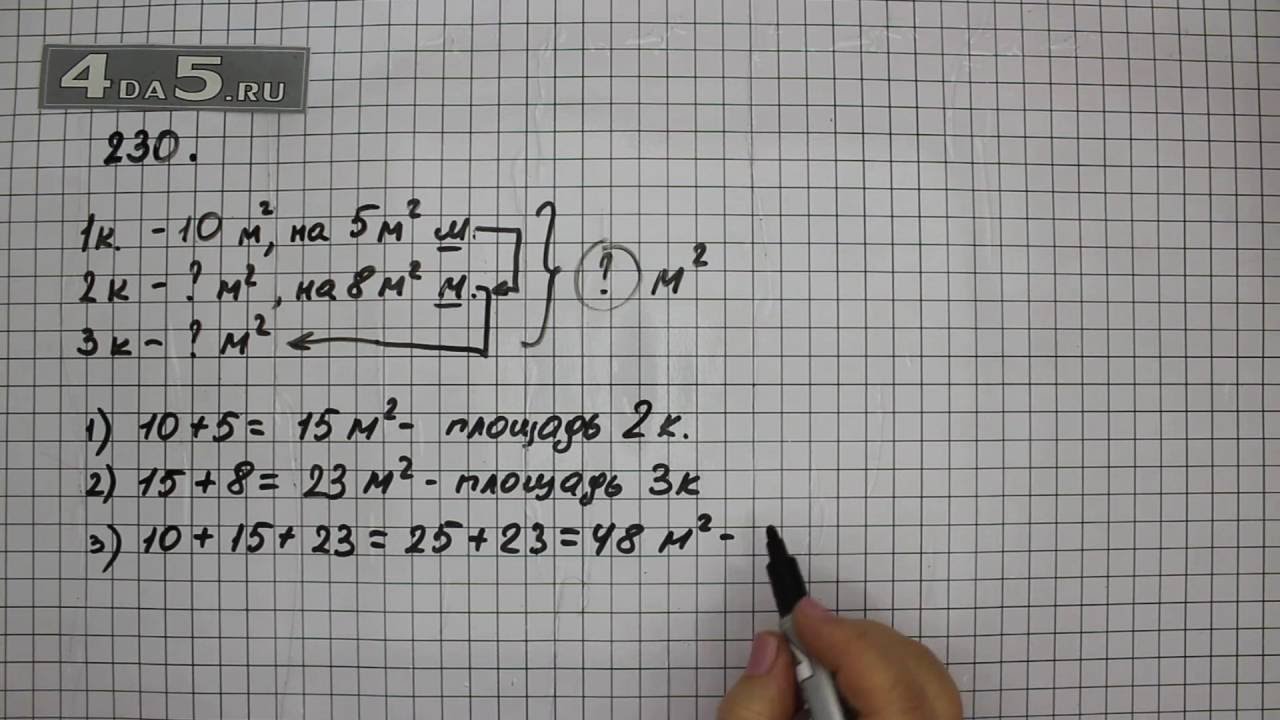 4DA5.RU
230.
1к. - 10 м², на 5 м² м.
2к - ? м², на 8 м² м.
3к - ? м²
? м²
1) 10 + 5 = 15 м² - площадь 2 к.
2) 15 + 8 = 23 м² - площадь 3к
3) 10 + 15 + 23 = 25 + 23 = 48 м² -